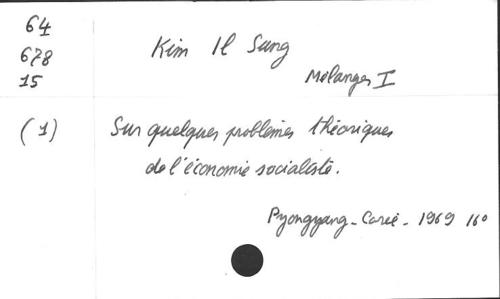 64
678
15
Kim Il Sung
Mélanges I
(1)
Sur quelques problèmes théoriques
de l'économie socialiste.
Pyongyang - Corée - 1969 16°